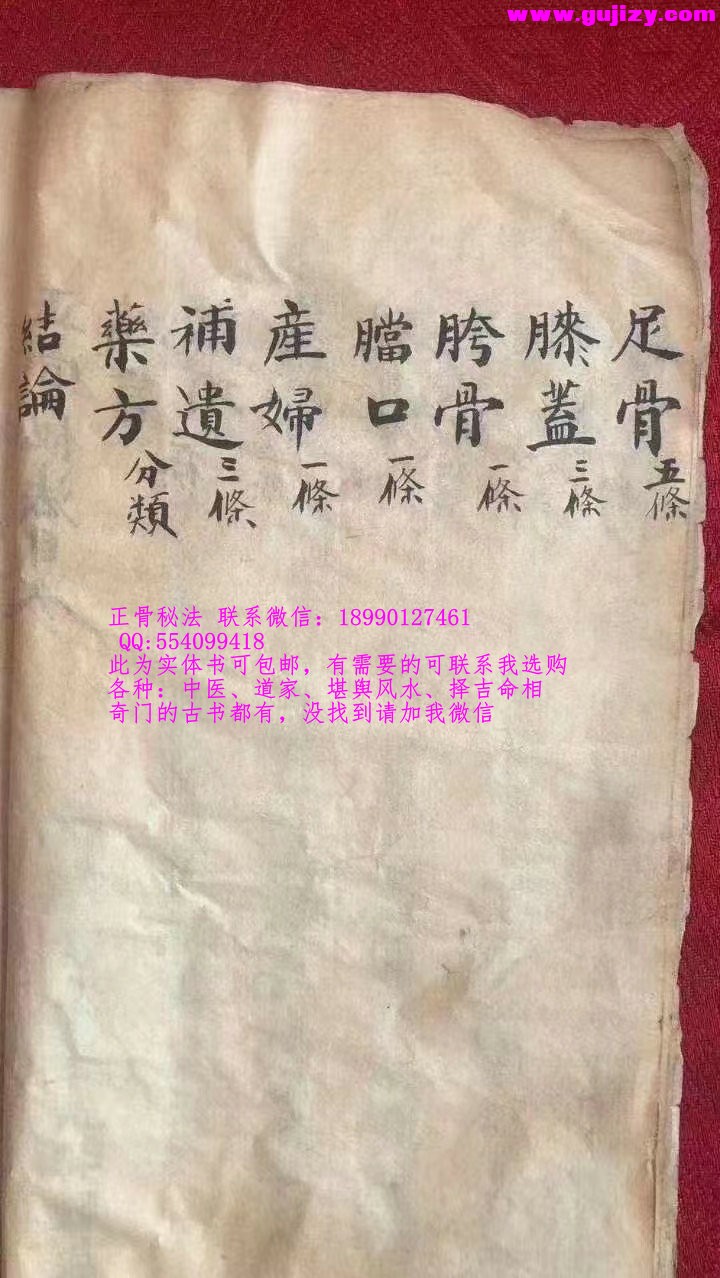 www.gujizy.com
足骨五條
膝蓋三條
胯骨一條
膛口一條
産婦一條
補遺三條
藥方分類
結論
正骨秘法 联系微信：18990127461
QQ:554099418
此为实体书可包邮，有需要的可联系我选购
各种：中医、道家、堪舆风水、择吉命相
奇门的古书都有，没找到请加我微信